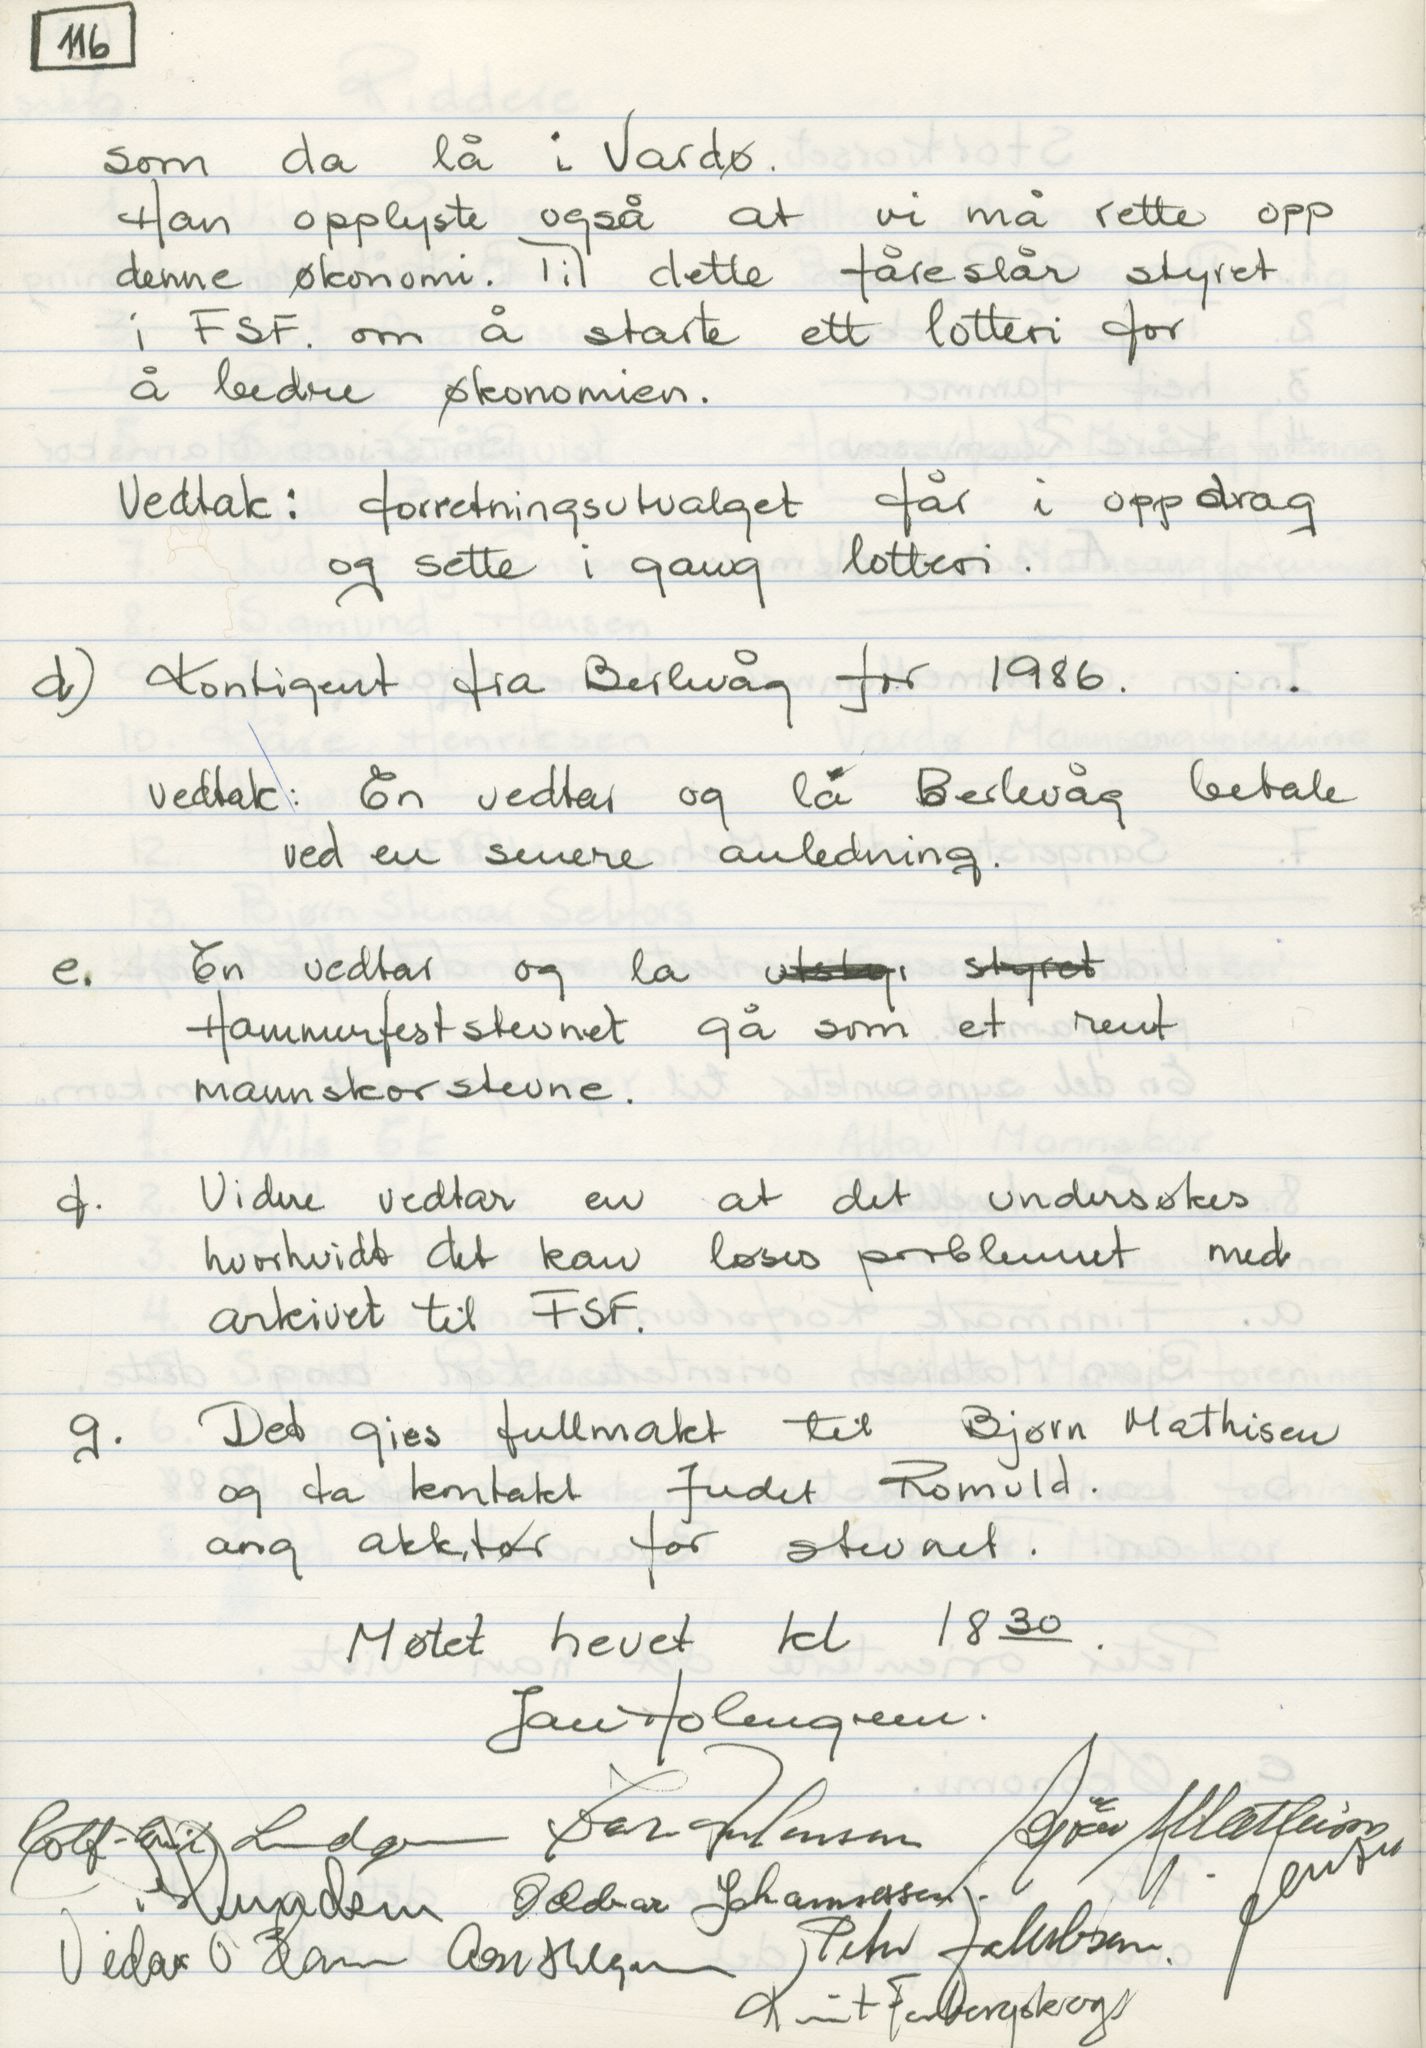 116
som da lå i Vardø.
Han opplyste også at vi må rette opp
denne økonomi. Til dette føreslår styret
i FSF. om å starte ett lotteri for
å bedre økonomien.
Vedtak: forretningsutvalget får i oppdrag
og sette i gang lotteri.
d) Kontigent fra Berlevåg for 1986.
vedtak: En vedtar og lå Berlevåg betale
ved en senere anledning.
e. En vedtar og la styret
Hammerfeststevnet gå som et rent
mannskorstevne.
f. Videre vedtar en at det undersøkes
hvorhvidt det kan løses problemet med
arkivet til FSF.
g. Det gies fullmakt til Bjørn Mathisen
og ta kontakt Romuld.
ang akkitør for stevnet.
Møtet hevet kl 18 30.
Jan Holmgren.
Oddvar Johannessen
Vidar O
Peter Jakobsen.